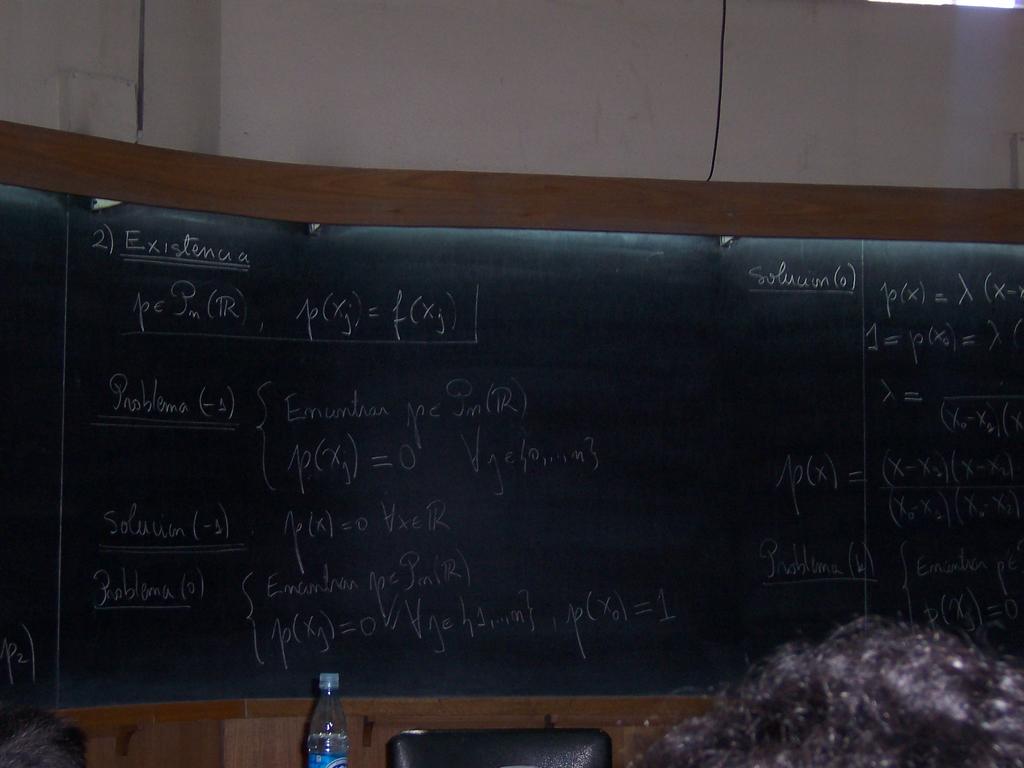 2) Existencia
p ∈ Pₙ(ℝ), p(xⱼ) = f(xⱼ)
Problema (-1) { Encontrar p ∈ Pₙ(ℝ)
p(xⱼ) = 0 ∀j ∈ {0,...,n}
Solucion (-1) p(x) = 0 ∀x ∈ ℝ
Problema (0) { Encontrar p ∈ Pₙ(ℝ)
p(xⱼ) = 0 ∀j ∈ {1,...,n}, p(x₀) = 1
p₂)
Solucion (0) p(x) = λ (x-x
1 = p(x₀) = λ (
λ =
(x₀-x₁)(x
p(x) = (x-x₁)(x-x₂)
(x₀-x₁)(x₀-x₂)
Problema (k) { Encontrar p ∈
p(xⱼ) = 0